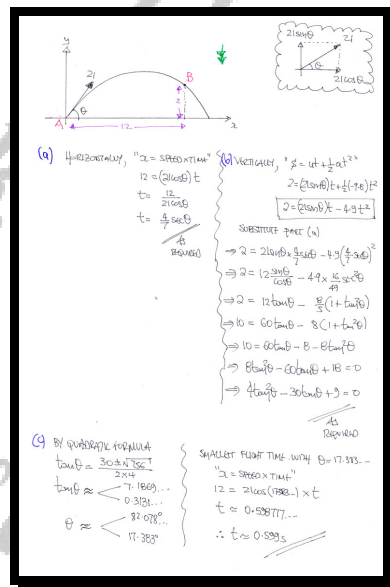 y
21
θ
A
B
2
12
x
21sinθ
21
θ
21cosθ
(a) HORIZONTALLY, "x = SPEED × TIME"
12 = (21cosθ) t
t = 12/21cosθ
t = 4/7 secθ
As REQUIRED
(b) VERTICALLY, "s = ut + 1/2 at²"
2 = (21sinθ)t + 1/2(-9.8)t²
2 = (21sinθ)t - 4.9t²
SUBSTITUTE PART (a)
⇒ 2 = 21sinθ × 4/7 secθ - 4.9(4/7 secθ)²
⇒ 2 = 12 sinθ/cosθ - 4.9 × 16/49 sec²θ
⇒ 2 = 12tanθ - 8/5(1+tan²θ)
⇒ 10 = 60tanθ - 8(1+tan²θ)
⇒ 10 = 60tanθ - 8 - 8tan²θ
⇒ 8tan²θ - 60tanθ + 18 = 0
⇒ 4tan²θ - 30tanθ + 9 = 0
As REQUIRED
(c) BY QUADRATIC FORMULA
tanθ = 30 ± √756 / 2×4
tanθ ≈ 7.1869...
0.3131...
θ ≈ 82.078°
17.383°
SMALLEST FLIGHT TIME WITH θ = 17.383...
"x = SPEED × TIME"
12 = 21cos(17.383...) × t
t ≈ 0.598777...
∴ t ≈ 0.599s